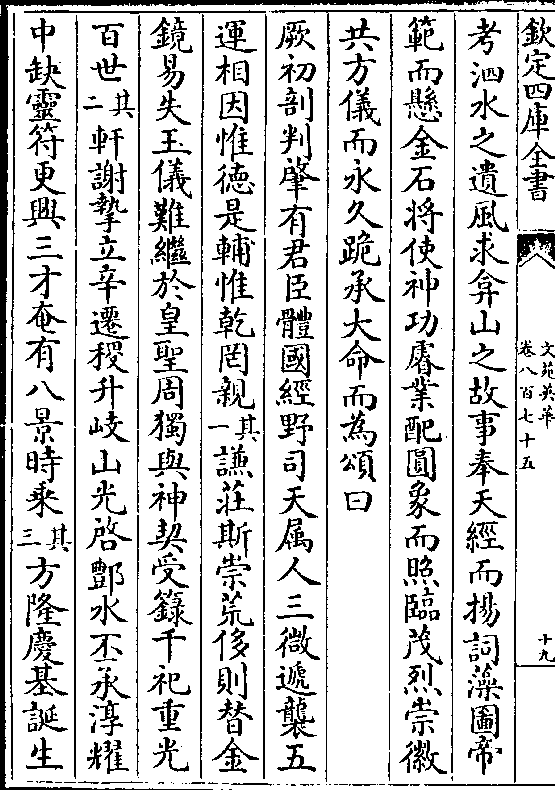 欽定四庫全書
文苑英華
卷八百七十五
十九
考泗水之遺風求弇山之故事奉天經而揚詞藻圖帝
範而懸金石將使神功睿業配圓象而照臨茂烈崇徽
共方儀而永久跪承大命而為頌曰
厥初剖判肇有君臣體國經野司天属人三微遞襲五
運相因惟德是輔惟乾罔親其一謙莊斯崇荒侈則替金
鏡易失玉儀難繼於皇聖周獨與神契受籙千祀重光
百世其二軒謝摯立辛遷稷升岐山光啓酆水丕承淳耀
中缺靈符更興三才奄有八景時乘其三方隆慶基誕生